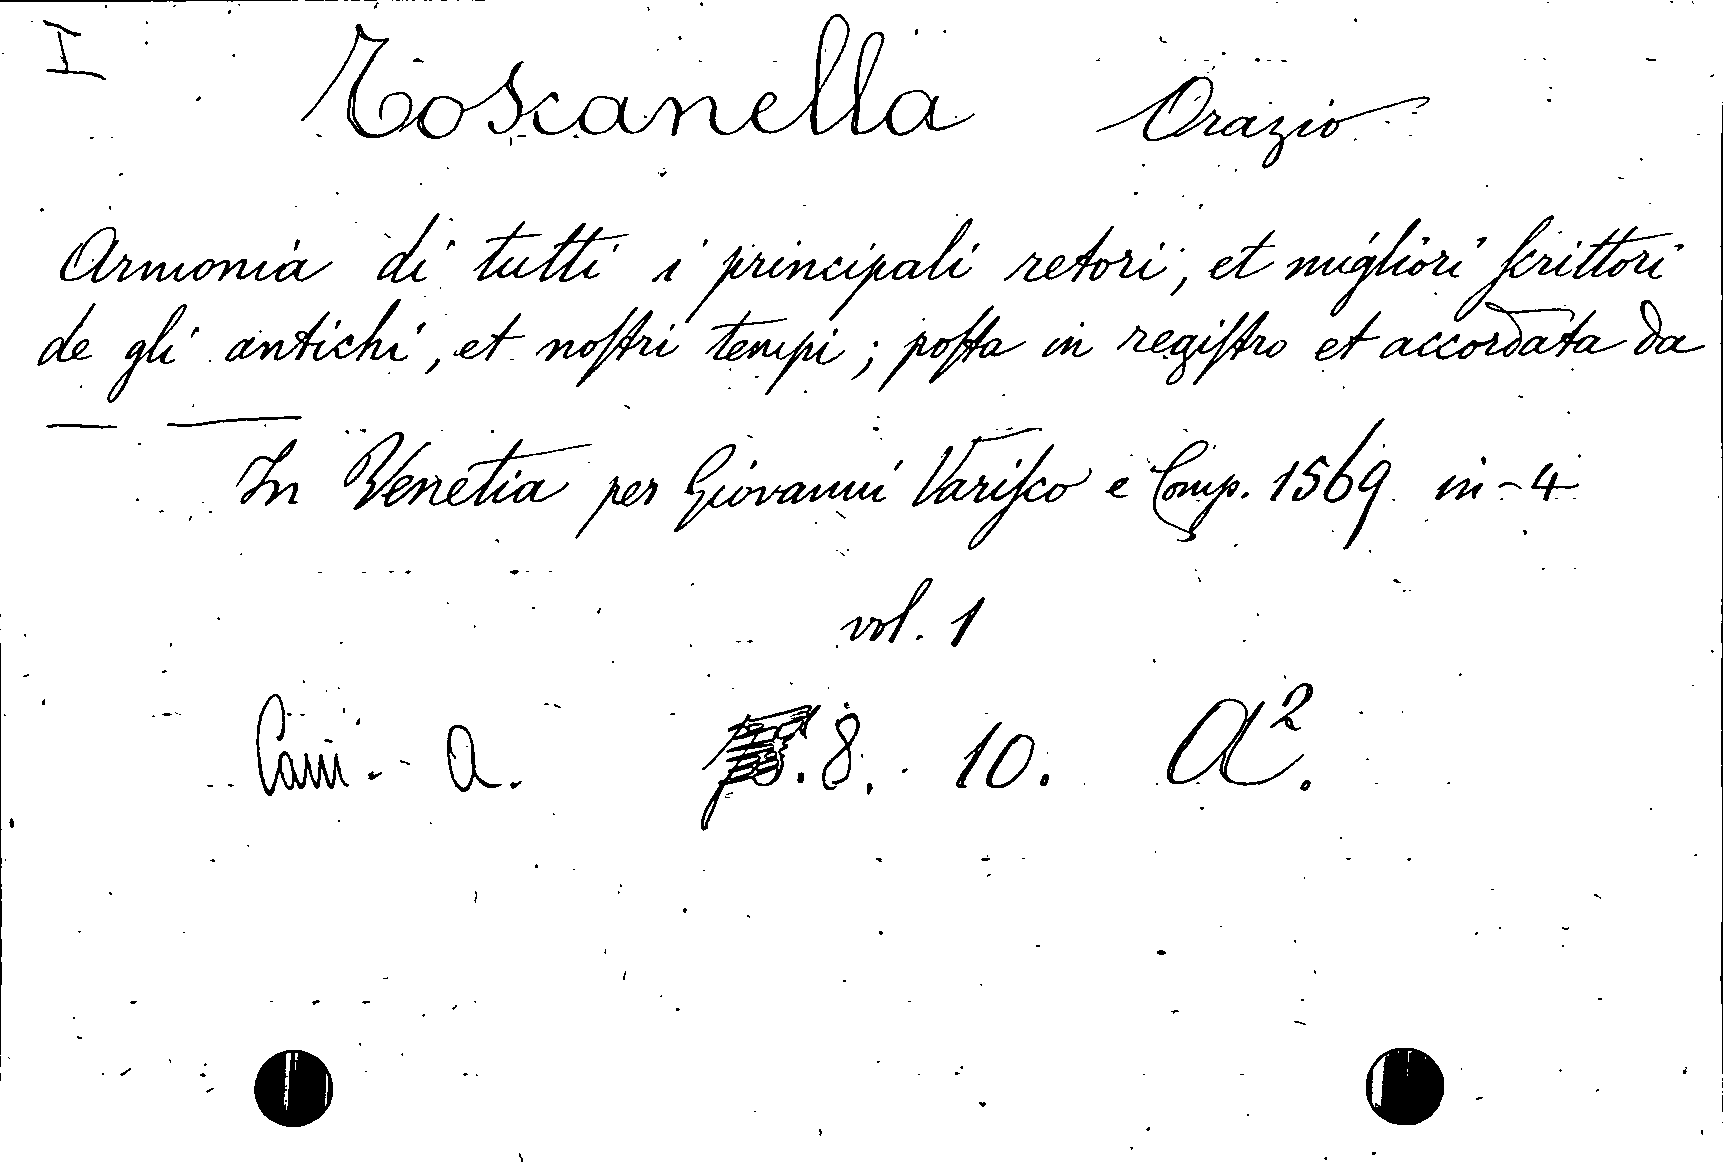 I
Toscanella Orazio
Armonia di tutti i principali retori, et migliori ſcrittori
de gli antichi, et noſtri tempi; poſta in regiſtro et accordata da
— —
In Venetia per Giovanni Variſco e Comp. 1569 in-4
vol. 1
Cam. A. 8. 10. A².